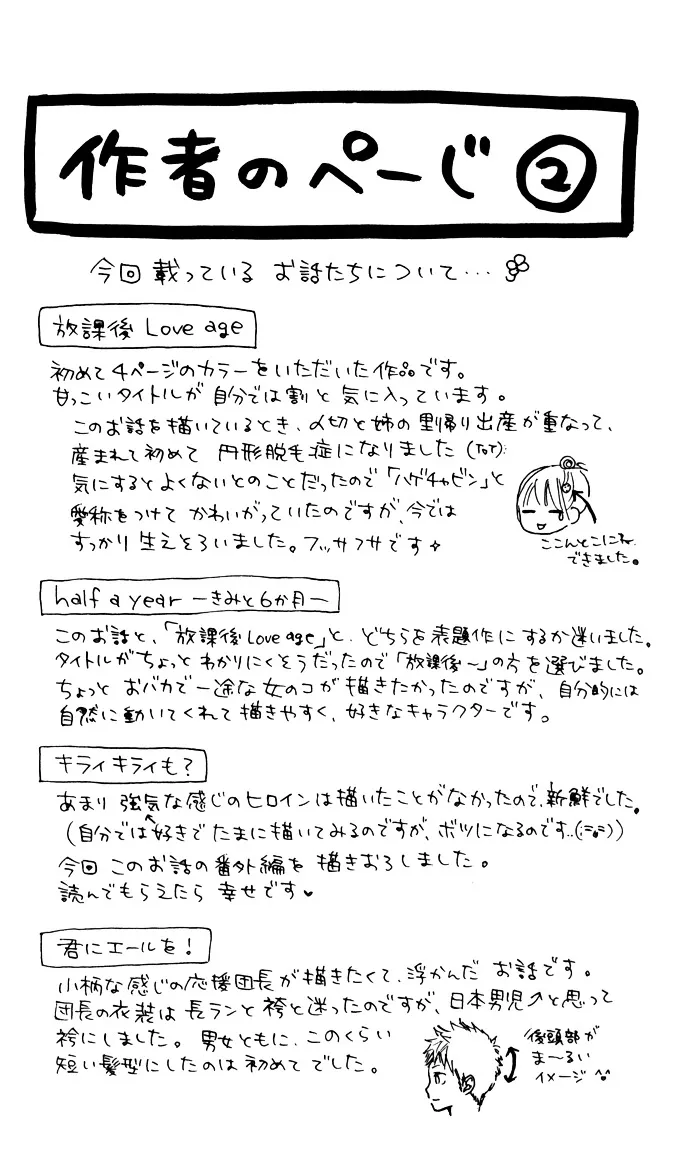 作者のページ②
今回載っているお話たちについて…
放課後 Love age
初めて4ページのカラーをいただいた作品です。
甘っこいタイトルが自分では割と気に入っています。
このお話を描いているとき、〆切と姉の里帰り出産が重なって、
産まれて初めて 円形脱毛症になりました (ToT)
気にするとよくないとのことだったので「ハゲチャビン」と
愛称をつけて かわいがっていたのですが、今では
すっかり生えそろいました。フッサフサです
ここんとこにね、
できました。
half a year ーきみと6か月ー
このお話と、「放課後 Love age」と、どちらを表題作にするか迷いました。
タイトルがちょっと わかりにくそうだったので「放課後〜」の方を選びました。
ちょっと おバカで一途な女のコが描きたかったのですが、自分的には
自然に動いてくれて描きやすく、好きなキャラクターです。
キライキライも?
あまり 強気な感じのヒロインは描いたことがなかったので、新鮮でした。
(自分では好きで たまに描いてみるのですが、ボツになるのです..
今回 このお話の番外編を 描きおろしました。
読んでもらえたら 幸せです♥
君にエールを!
小柄な感じの応援団長が描きたくて、浮かんだ お話です。
団長の衣装は 長ランと 袴と迷ったのですが、日本男児↗と思って
袴にしました。 男女ともに、このくらい
短い髪型にしたのは 初めてでした。
後頭部が
ま〜るい
イメージ